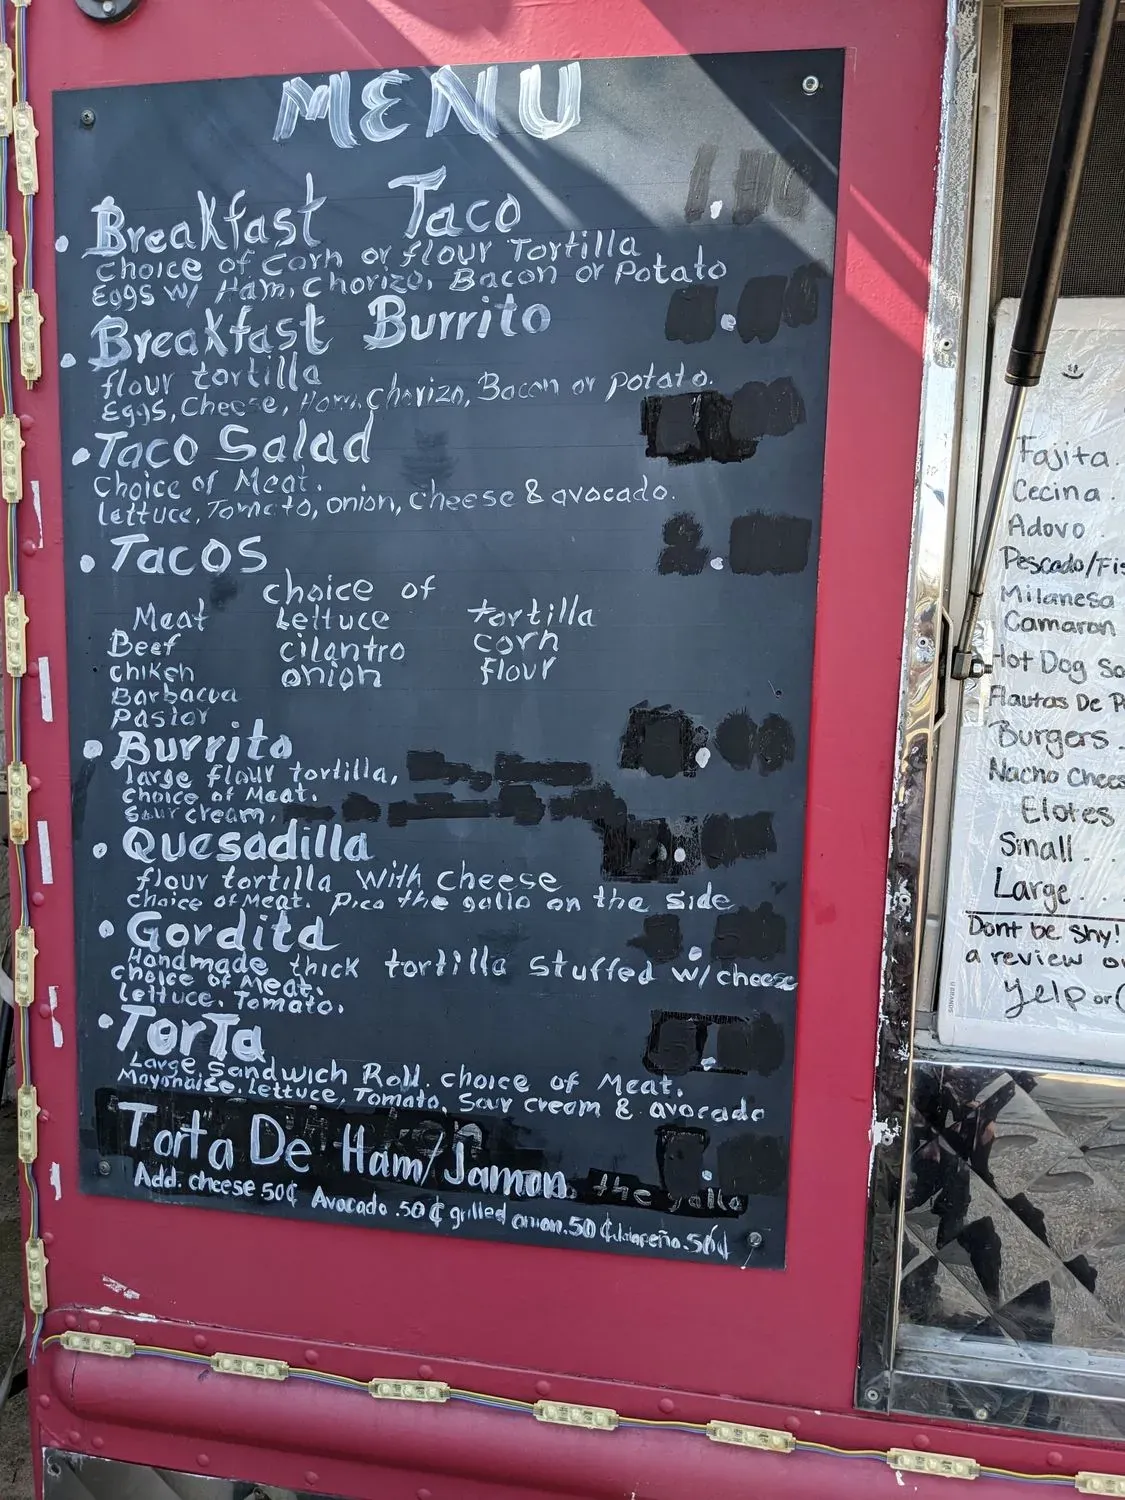 MENU
Breakfast Taco
Choice of Corn or flour Tortilla
Eggs w/ Ham, chorizo, Bacon or Potato
Breakfast Burrito
flour tortilla
Eggs, Cheese, Ham, Chorizo, Bacon or potato.
Taco Salad
Choice of Meat.
lettuce, Tomato, onion, cheese & avocado.
Tacos
choice of
Meat Lettuce tortilla
Beef cilantro corn
chiken onion flour
Barbacua
Pastor
Burrito
large flour tortilla,
choice of Meat.
sour cream,
Quesadilla
flour tortilla with cheese
choice of Meat. Pico the gallo on the side
Gordita
Handmade thick tortilla stuffed w/cheese
choice of Meat.
lettuce, Tomato.
TorTa
Large Sandwich Roll. choice of Meat.
Mayonaise, lettuce, Tomato, Sour cream & avocado
Torta De Ham/Jamon. the gallo
Add. cheese .50¢ Avocado .50¢ grilled onion .50¢ Jalapeño .50¢
Fajita.
Cecina.
Adovo
Pescado/Fis
Milanesa
Camaron
Hot Dog So
Flautas De P
Burgers
Nacho Chees
Elotes
Small . .
Large . . .
Dont be shy!
a review o
yelp or (